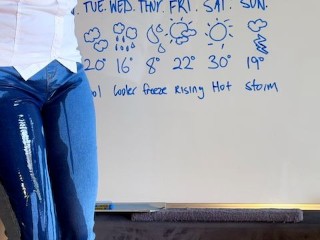 TUE. WED. THUY. FRI. SAT. SUN.
20° 16° 8° 22° 30° 19°
ol Cooler freeze Rising Hot storm